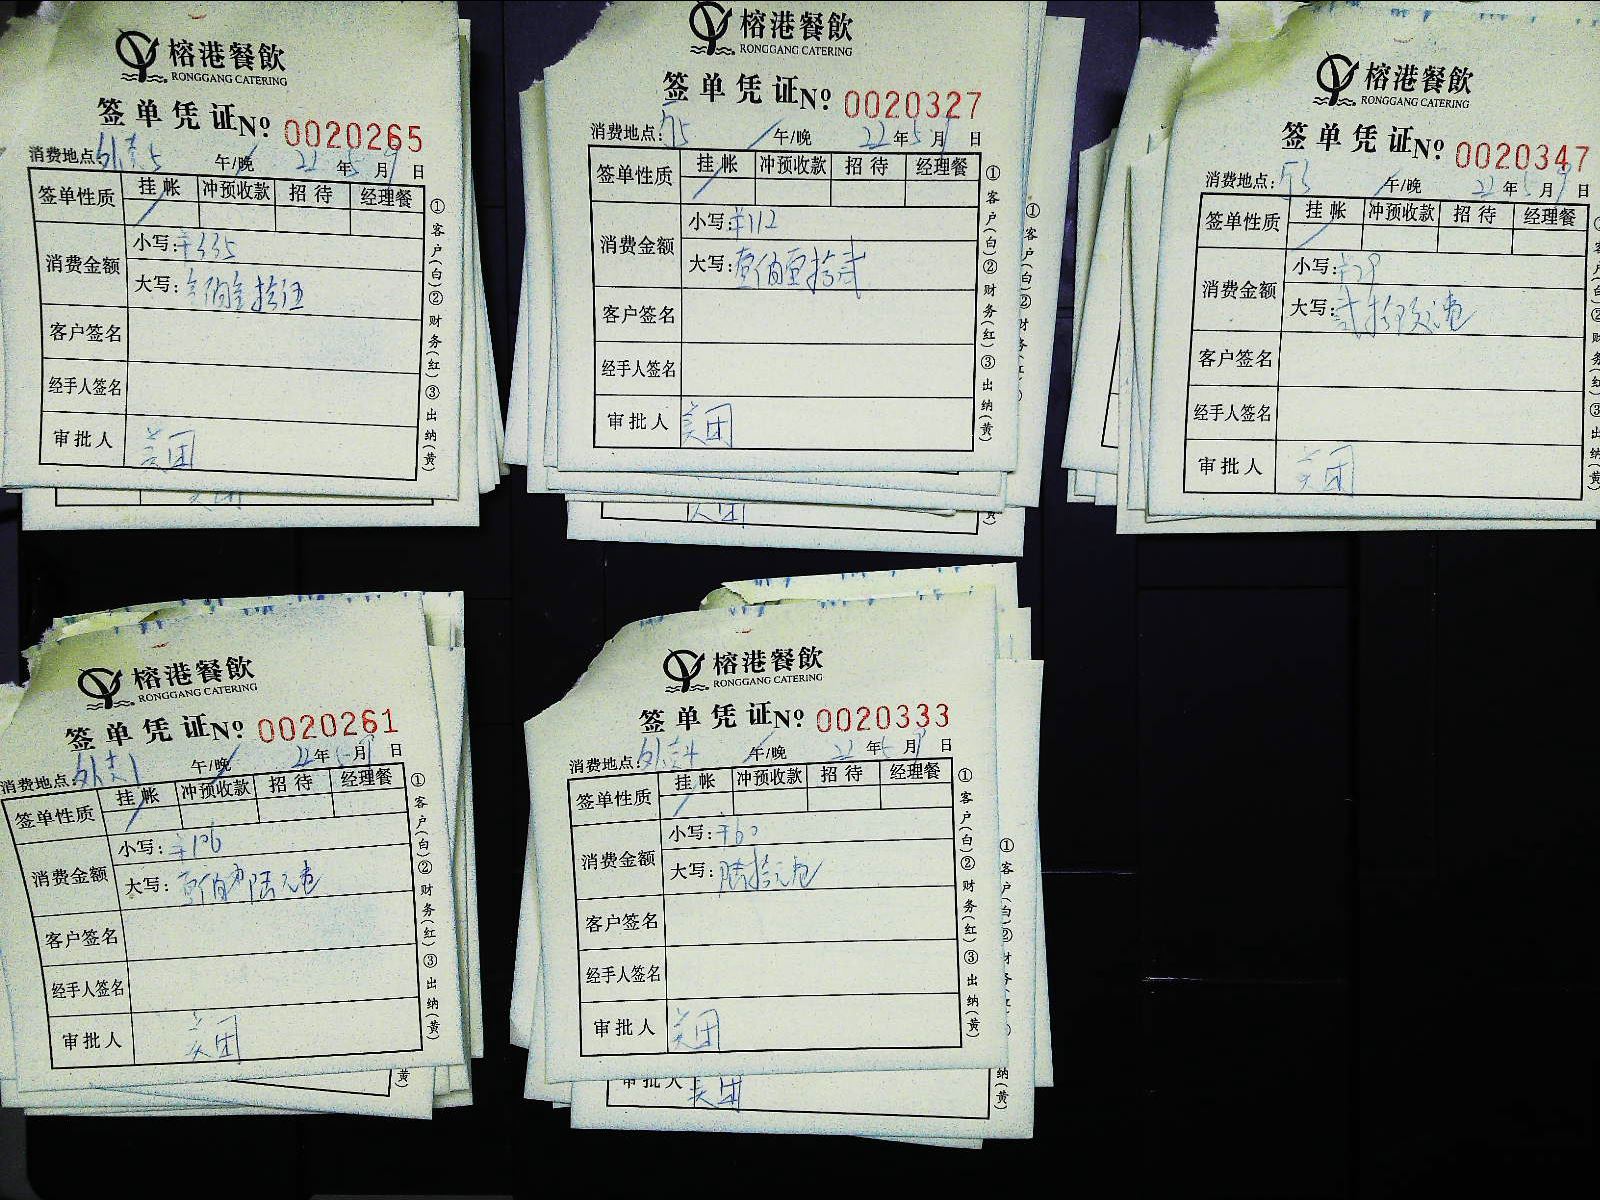 榕港餐飲
RONGGANG CATERING
签单凭证№ 0020265
消费地点: 外卖5 午/晚 22年5月9日
签单性质 挂帐 冲预收款 招待 经理餐
消费金额 小写:¥335
大写:叁佰叁拾伍
客户签名
经手人签名
审批人 美团
①客户(白)②财务(红)③出纳(黄)
榕港餐飲
RONGGANG CATERING
签单凭证№ 0020327
消费地点: 午/晚 22年5月9日
签单性质 挂帐 冲预收款 招待 经理餐
消费金额 小写:¥112
大写:壹佰壹拾贰
客户签名
经手人签名
审批人 美团
①客户(白)②财务(红)③出纳(黄)
榕港餐飲
RONGGANG CATERING
签单凭证№ 0020347
消费地点: 午/晚 22年5月9日
签单性质 挂帐 冲预收款 招待 经理餐
消费金额 小写:¥29
大写:贰拾玖元整
客户签名
经手人签名
审批人 美团
榕港餐飲
RONGGANG CATERING
签单凭证№ 0020261
消费地点: 外卖1 午/晚 22年5月9日
签单性质 挂帐 冲预收款 招待 经理餐
消费金额 小写:¥106
大写:壹佰零陆元整
客户签名
经手人签名
审批人 美团
①客户(白)②财务(红)③出纳(黄)
榕港餐飲
RONGGANG CATERING
签单凭证№ 0020333
消费地点: 外卖4 午/晚 22年5月9日
签单性质 挂帐 冲预收款 招待 经理餐
消费金额 小写:¥60
大写:陆拾元整
客户签名
经手人签名
审批人 美团
①客户(白)②财务(红)③出纳(黄)
审批人 美团